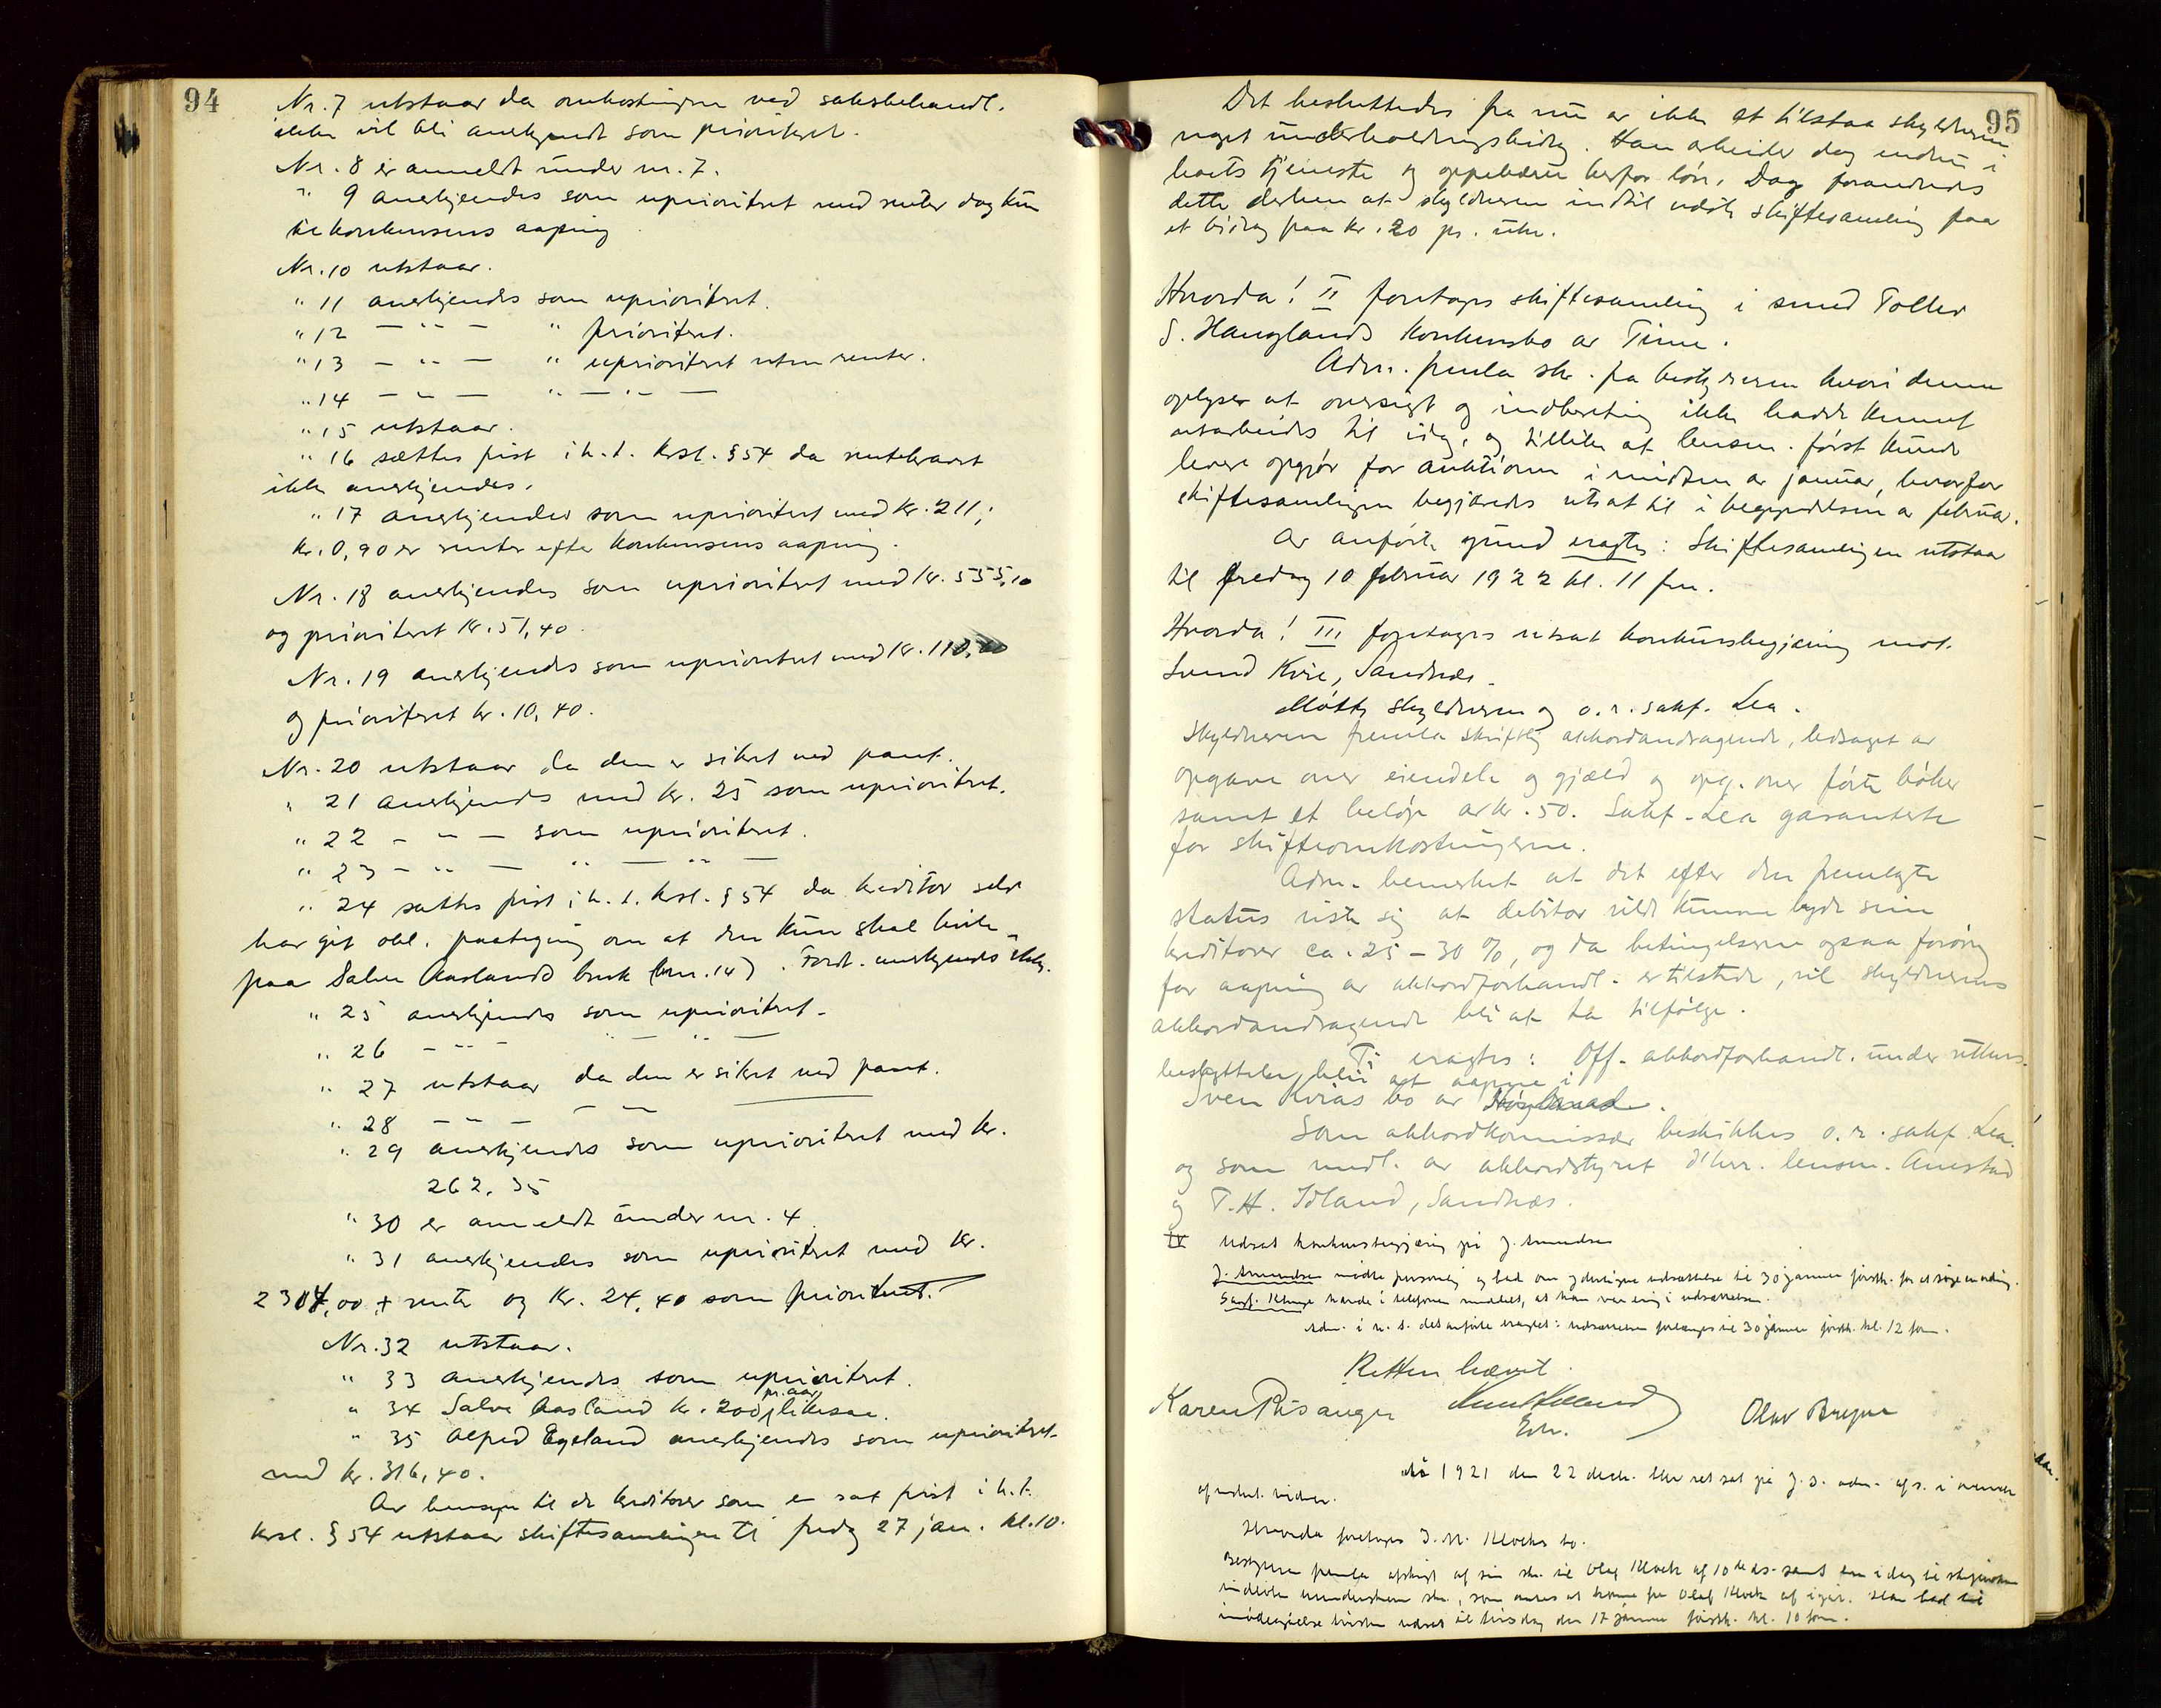 94
Nr. 7 utstaar da omkostningene ved saksbehandl.
ikke vil bli anerkjendt som prioritert.
Nr. 8 er anmeldt under nr. 7.
" 9 anerkjendes som uprioritert med renter dog kun
til konkursens aapning
Nr. 10 utstaar.
" 11 anerkjendes som uprioritert.
" 12 — " — " prioritert.
" 13 — " — " uprioritert uten renter.
" 14 — " — " — " —
" 15 utstaar.
" 16 sættes frist i h. t. krsl. § 54 da rentekravet
ikke anerkjendes.
" 17 anerkjendes som uprioritert med kr. 211;
kr. 0,90 er renter efter konkursens aapning.
Nr. 18 anerkjendes som uprioritert med kr. 555,10
og prioritert kr. 51,40.
Nr. 19 anerkjendes som uprioritert med kr. 110,
og prioritert kr. 10,40.
Nr. 20 utstaar da den er sikret ved pant.
" 21 anerkjendes med kr. 25 som uprioritert.
" 22 — " — som uprioritert.
" 23 — " — " — " —
" 24 sættes frist i h. t. krsl. § 54 da kreditor selv
har git obl. paategning om at den kun skal hvile
paa Salve Aaslands bruk (bnr. 14). Fordr. anerkjendes ikke.
" 25 anerkjendes som uprioritert.
" 26 — " — — " —
" 27 utstaar da den er sikret ved pant.
" 28 — " — — —
" 29 anerkjendes som uprioritert med kr.
262,35
" 30 er anmeldt under nr. 4.
" 31 anerkjendes som uprioritert med kr.
2304,00 + renter og kr. 24,40 som prioritert.
Nr. 32 utstaar.
" 33 anerkjendes som uprioritert.
" 34 Salve Aasland kr. 200 pr. aar likesaa.
" 35 Alfred Egeland anerkjendes som uprioritert
med kr. 316,40.
Av hensyn til de kreditorer som er sat frist i h. t.
krsl. § 54 utstaar skiftesamlingen til fredag 27 jan. kl. 10.
95
Det besluttedes fra nu av ikke at tilstaa skyldneren
noget underholdningsbidrag. Han arbeider dog endnu i
boets tjeneste og oppebærer herfor løn. Dog forandredes
dette derhen at skyldneren indtil næste skiftesamling faar
et bidrag paa kr. 20 pr. uke.
Hvorda! II foretages skiftesamling i smed Tollev
S. Hauglands konkursbo av Time.
Adm. fremla skr. fra bestyreren hvori denne
oplyser at oversigt og indberetning ikke hadde kunnet
utarbeides til idag, og tillike at lensm. først kunde
levere opgjør for auktionen i midten av januar, hvorfor
skiftesamlingen begjæredes utsat til i begyndelsen av februar.
Av anførte grund eragtes: Skiftesamlingen utstaar
til fredag 10 februar 1922 kl. 11 fm.
Hvorda! III foretages utsat konkursbegjæring mot
Svend Kvie, Sandnæs.
Møtte skyldneren og o. r. sakf. Lea.
Skyldneren fremla skriftlig akkordandragende, ledsaget av
opgave over eiendele og gjæld og opg. over førte bøker
samt et beløp av kr. 50. Sakf. Lea garanterte
for skifteomkostningerne.
Adm. bemerket at det efter den fremlagte
status viste sig at debitor vilde kunne byde sine
kreditorer ca. 25 – 30 %, og da betingelserne ogsaa forøvrig
for aapning av akkordforhandl. er tilstede, vil skyldnerens
akkordandragende bli at ta tilfølge.
Ti eragtes: Off. akkordforhandl. under utkurs-
beskyttelse blir at aapne i
Sven Kvias bo av
Som akkordkommissær beskikkes o. r. sakf. Lea.
og som medl. av akkordstyret d'hrr. lensm. Aurstad
og T. H. Idland, Sandnæs.
IV Udsat konkursbegjæring på J. Amundsen
J. Amundsen mødte personlig og bad om yderligere udsættelse til 30 januar førstk. for at søge en ordning.
Sagf. Kluge havde i telefonen meddelt, at han var enig i udsættelsen.
Adm. i h. t. det anførte eragtet: Udsættelsen forlænges til 30 januar førstk. kl. 12 fm.
Retten hævet.
Karen Risanger
Olav Bryne
År 1921 den 22 decbr. blev ret sat på J. S. adm. af s. i overvær
af undert. vidner.
Hvorda foretages J. M. Kloeks bo.
Bestyreren fremla afskrift af sin skr. til Olaf Kloek af 10de ds. samt en i dag til skifteretten
indløbet skr., som antas at komme fra Olaf Kloek af igår. Han bad til
imødegåelse heraf udsat til tirsdag den 17 januar førstk. kl. 10 fm.